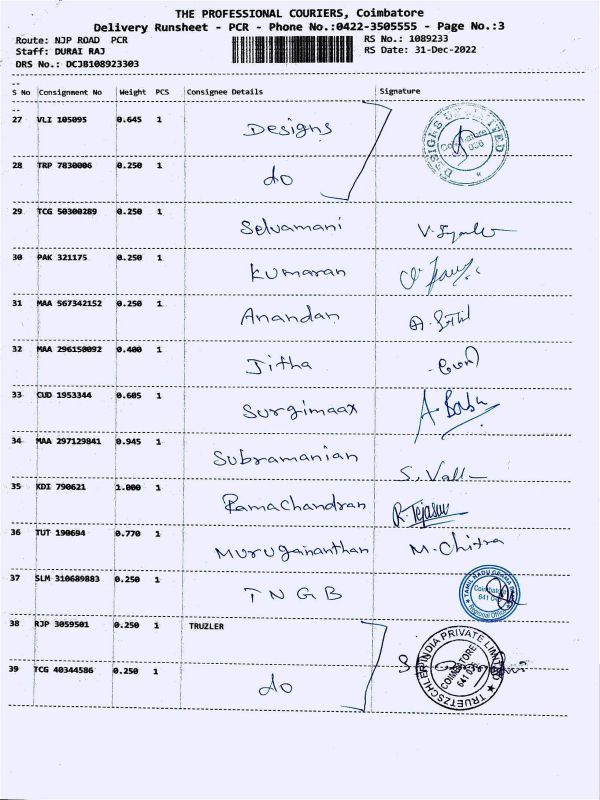 THE PROFESSIONAL COURIERS, Coimbatore
Delivery Runsheet - PCR - Phone No.:0422-3505555 - Page No.:3
Route: NJP ROAD PCR
RS No.: 1089233
Staff: DURAI RAJ
RS Date: 31-Dec-2022
DRS No.: DCJB108923303
S No Consignment No Weight PCS Consignee Details Signature
27 VLI 105095 0.645 1 Designs
DESIGNS UNLIMITED Coimbatore
28 TRP 7830006 0.250 1 do
29 TCG 50300289 0.250 1 Selvamani
30 PAK 321175 0.250 1 Kumaran
31 MAA 567342152 0.250 1 Anandan
32 MAA 296150092 0.400 1 Jitha
33 CUD 1953344 0.605 1 Surgimaax A. Babu
34 MAA 297129841 0.945 1 Subramanian S. Valli
35 KDI 790621 1.000 1 Ramachandran R. Tejasw
36 TUT 190694 0.770 1 Murugananthan M. Chitra
37 SLM 310689883 0.250 1 TNGB
TAMIL NADU GRAMA Coimbatore 641 Regional Office
38 RJP 3059501 0.250 1 TRUZLER
TRUETZSCHLER INDIA PRIVATE LIMITED COIMBATORE
39 TCG 40344586 0.250 1 do